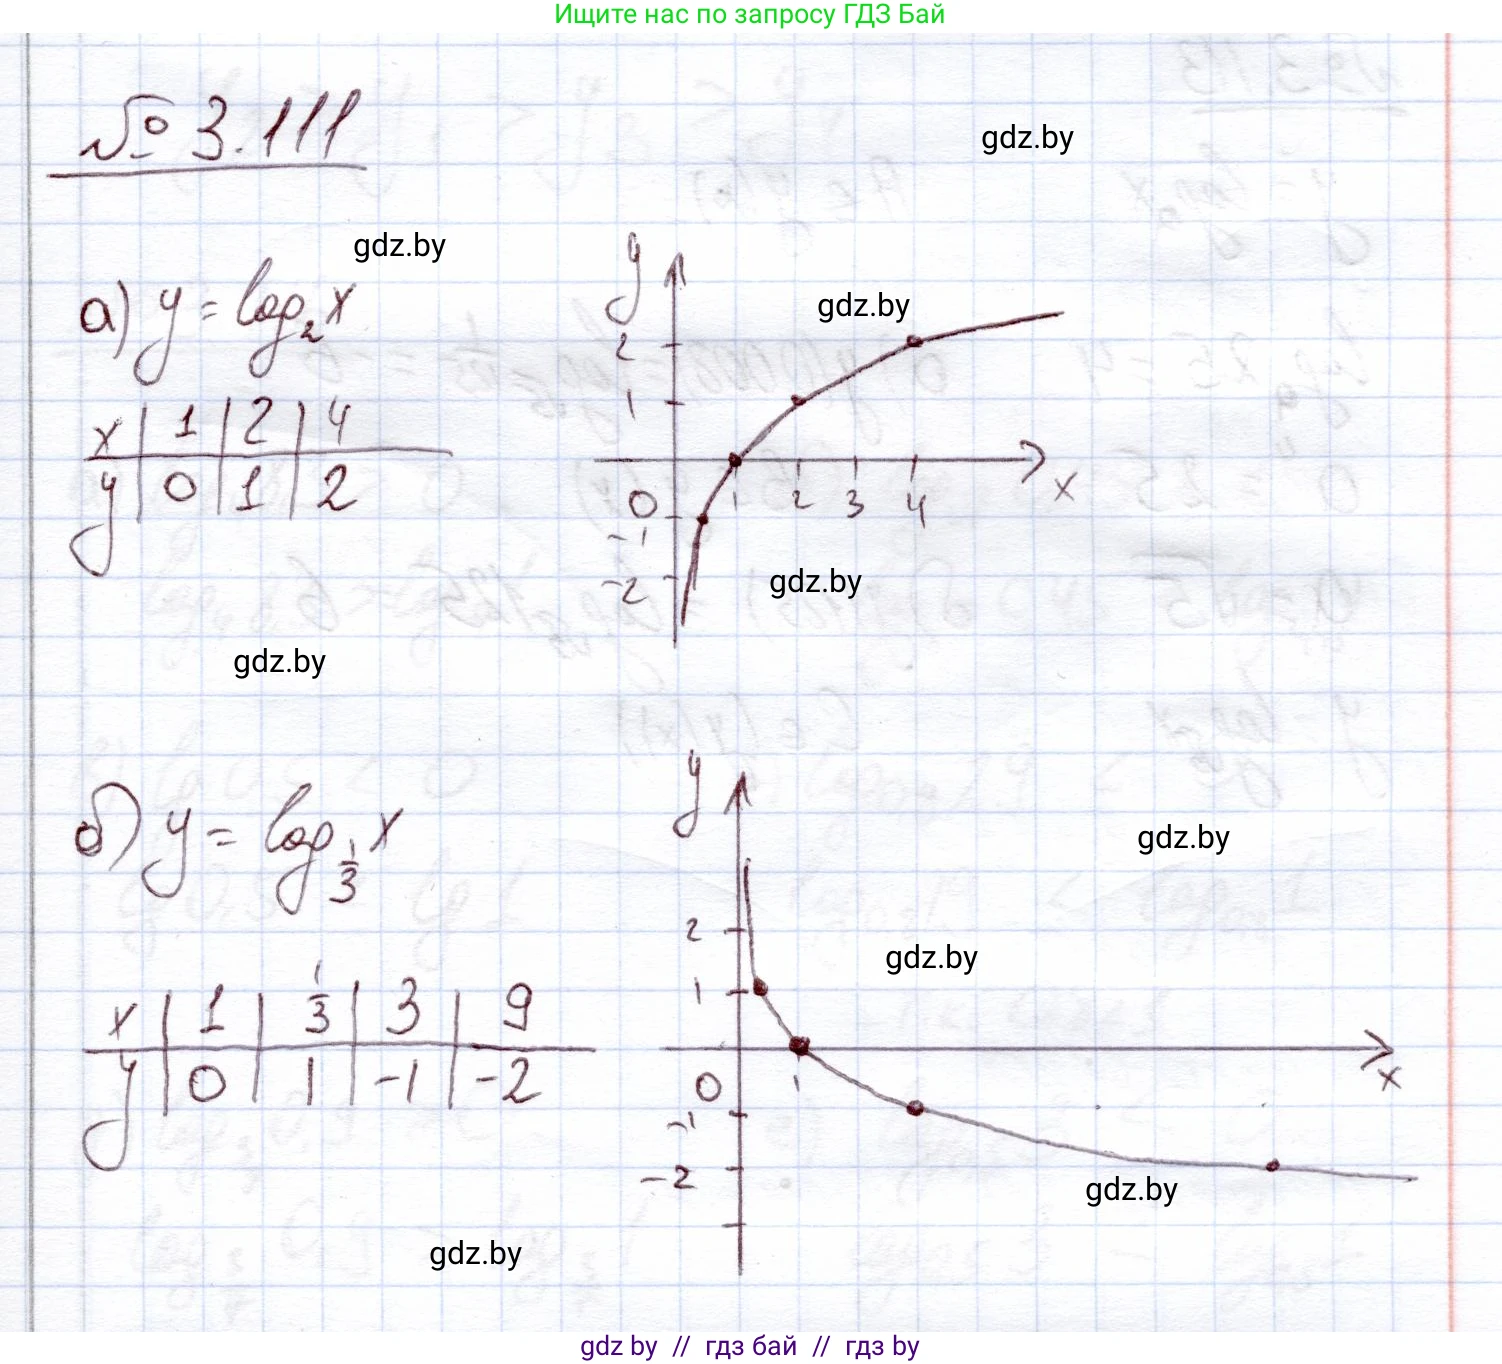 Ищите нас по запросу ГДЗ Бай
№ 3.111
gdz.by
gdz.by
а) y = log₂x
x | 1 | 2 | 4
y | 0 | 1 | 2
y
gdz.by
2
1
0 1 2 3 4 x
-1
-2
gdz.by
gdz.by
б) y = log_{1/3} x
x | 1 | 1/3 | 3 | 9
y | 0 | 1 | -1 | -2
y
gdz.by
2
gdz.by
1
0 1 x
-1
-2
gdz.by
gdz.by
gdz by // гдз бай // гдз by